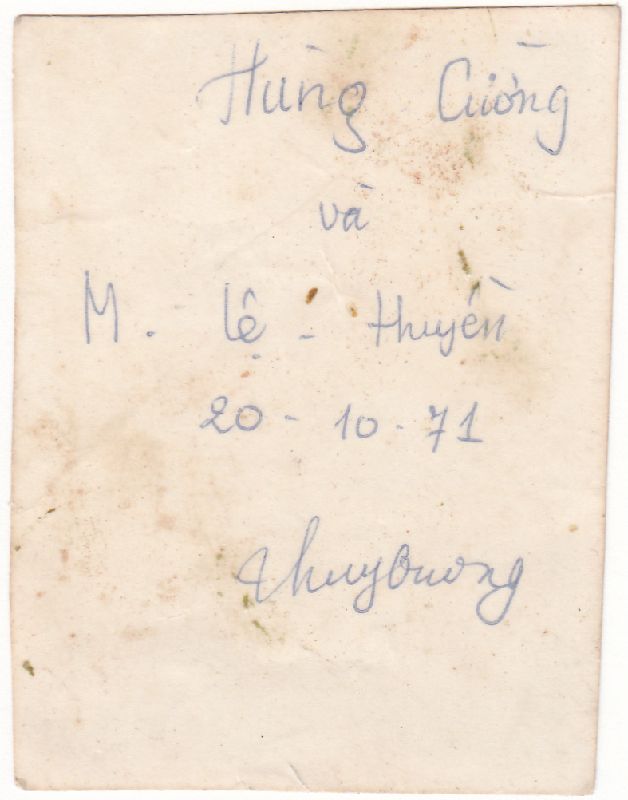 Hùng Cường
và
M. lệ - thuyền
20 - 10 - 71